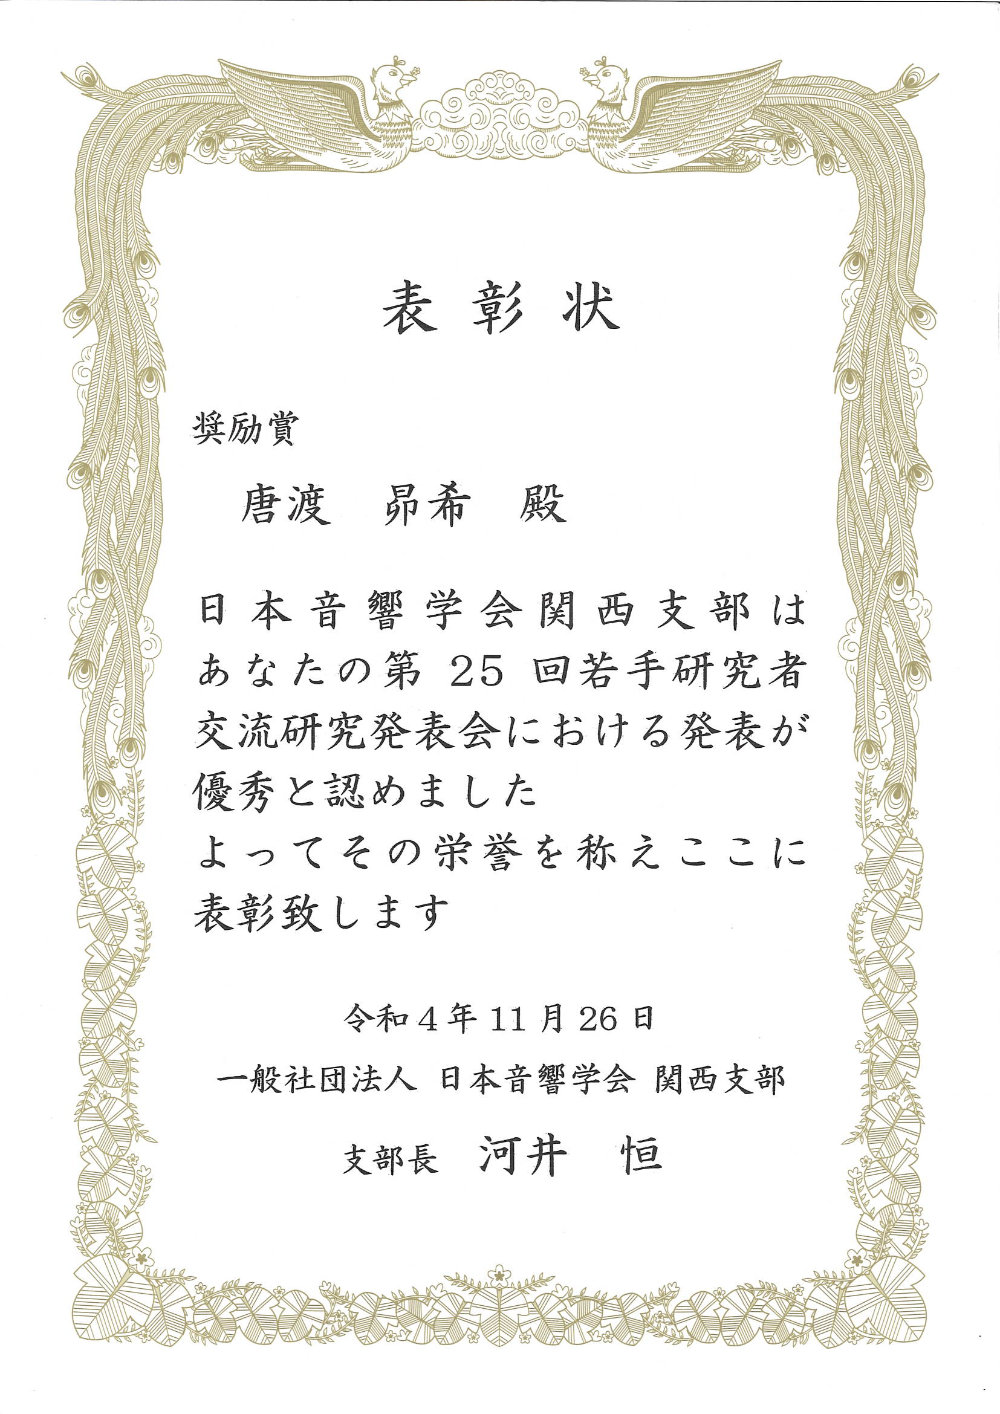 表彰状
奨励賞
唐渡 昴希 殿
日本音響学会関西支部は
あなたの第 25 回若手研究者
交流研究発表会における発表が
優秀と認めました
よってその栄誉を称えここに
表彰致します
令和 4 年 11 月 26 日
一般社団法人 日本音響学会 関西支部
支部長 河井 恒